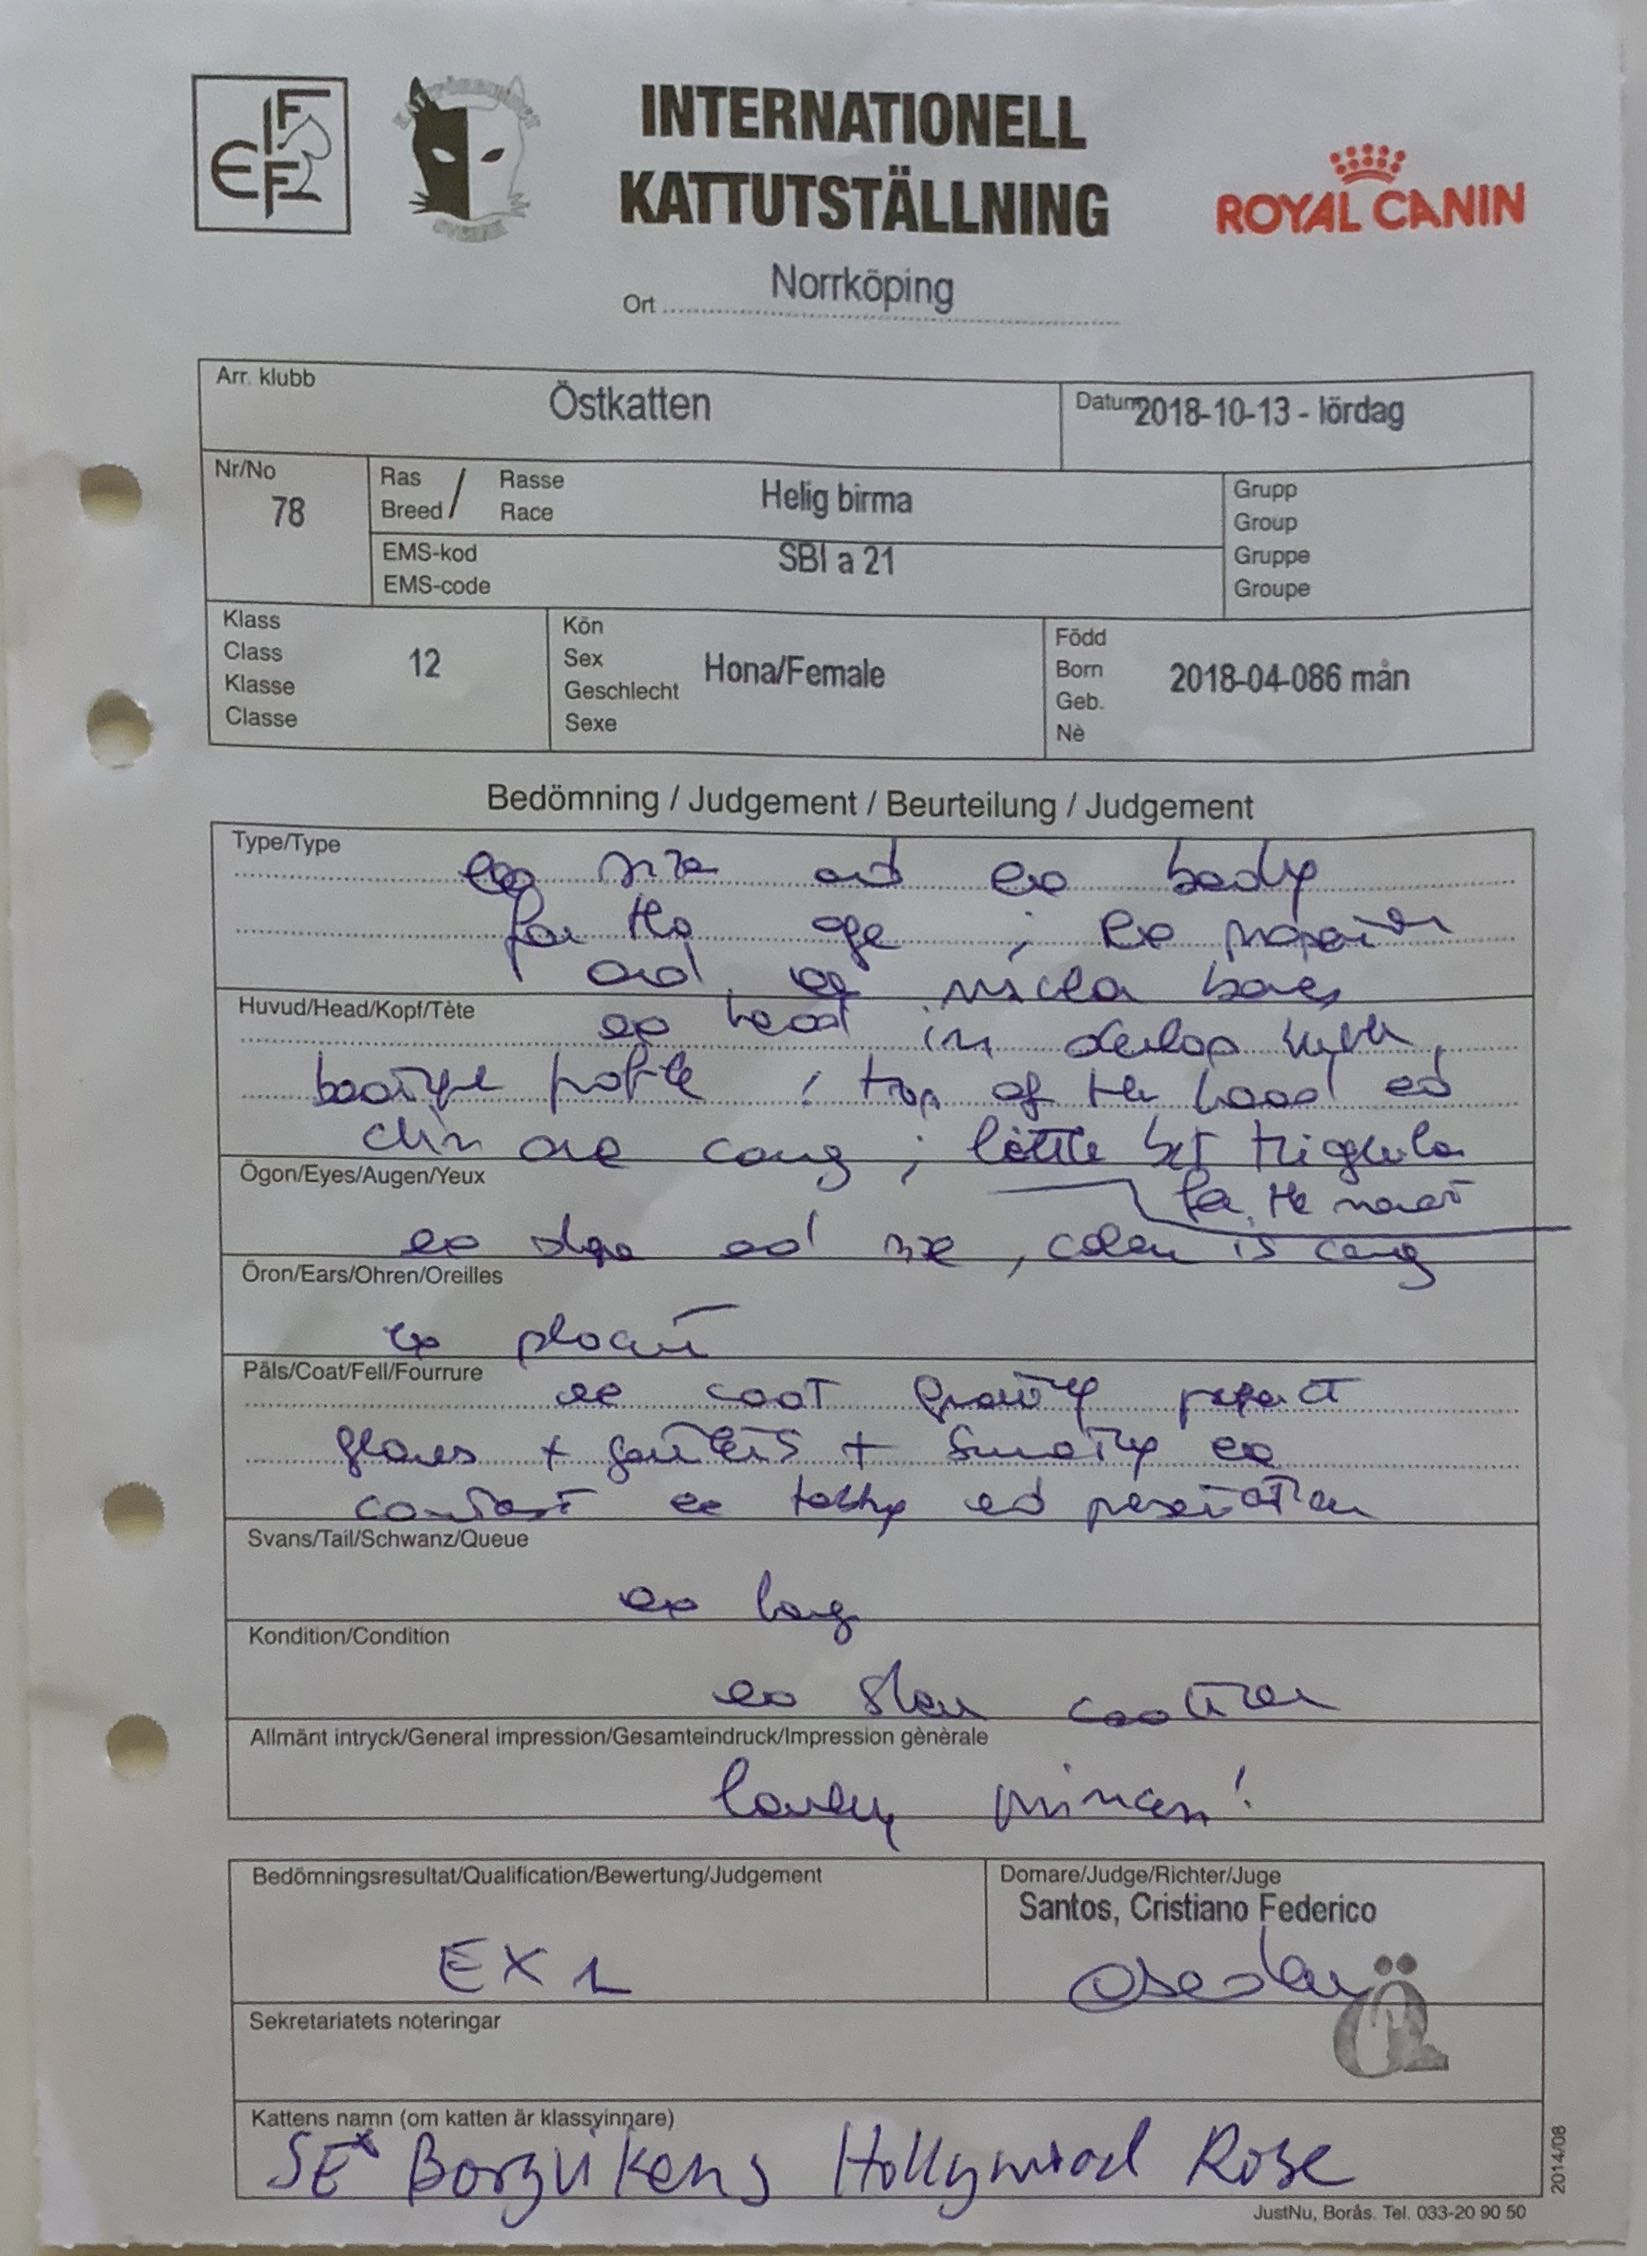 FIFE
INTERNATIONELL
KATTUTSTÄLLNING
ROYAL CANIN
Ort Norrköping
Arr. klubb Östkatten
Datum 2018-10-13 - lördag
Nr/No 78
Ras / Rasse
Breed Race
Helig birma
EMS-kod
EMS-code
SBI a 21
Grupp
Group
Gruppe
Groupe
Klass
Class
Klasse
Classe
12
Kön
Sex
Geschlecht
Sexe
Hona/Female
Född
Born
Geb.
Nè
2018-04-086 mån
Bedömning / Judgement / Beurteilung / Judgement
Type/Type
ex size and ex body
for the age ; ex
and bones
Huvud/Head/Kopf/Tête
ex head in
profile ; top of the head and
chin are ; little bit
for the
Ögon/Eyes/Augen/Yeux
ex shape and size, color is
Öron/Ears/Ohren/Oreilles
ex
Päls/Coat/Fell/Fourrure
ex coat quality perfect
gloves + + ex
contrast ex tabby and
Svans/Tail/Schwanz/Queue
ex long
Kondition/Condition
ex
Allmänt intryck/General impression/Gesamteindruck/Impression gènèrale
lovely !
Bedömningsresultat/Qualification/Bewertung/Judgement
EX 1
Domare/Judge/Richter/Juge
Santos, Cristiano Federico
Sekretariatets noteringar
Kattens namn (om katten är klassvinnare)
SE* Borgvikens Hollywood Rose
2014/08
JustNu, Borås. Tel. 033-20 90 50